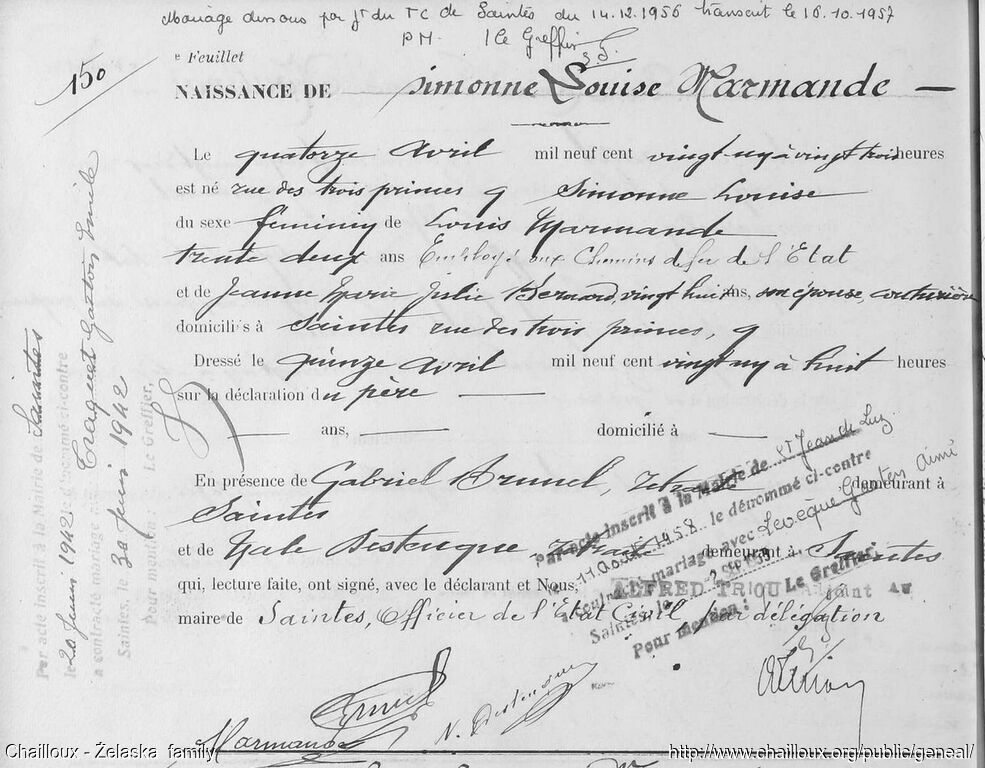 Mariage dissous par jt du TC de Saintes du 14.12.1956 transcrit le 16.10.1957
PM. Le Greffier
e Feuillet
150
NAISSANCE DE Simonne Louise Marmande
Le quatorze Avril mil neuf cent vingt-un à vingt trois heures
est né rue des trois princes 9 Simonne Louise
du sexe féminin de Louis Marmande
trente deux ans Employé aux Chemins de fer de l'État
et de Jeanne Marie Julie Bernard, vingt huit ans, son épouse, couturière
domiciliés à Saintes rue des trois princes, 9
Dressé le quinze Avril mil neuf cent vingt-un à huit heures
sur la déclaration du père
ans, domicilié à
En présence de Gabriel Brunel, demeurant à
Saintes
et de demeurant à Saintes
qui, lecture faite, ont signé, avec le déclarant et Nous, ALFRED TRIOU Adjoint au
maire de Saintes, Officier de l'État Civil par délégation
Par acte inscrit à la Mairie de Saintes
le 20 Juin 1942 le dénommé ci-contre
a contracté mariage avec Traquet Gaston Emile
Saintes, le 30 juin 1942
Pour mention, Le Greffier,
Par acte inscrit à la Mairie de St Jean de Luz
le 11 Août 1958 le dénommé ci-contre
a contracté mariage avec Levèque Gaston Aimé
Saintes, le
Pour mention : Le Greffier,
Marmande
Chailloux - Żelaska family
http://www.chailloux.org/public/geneal/